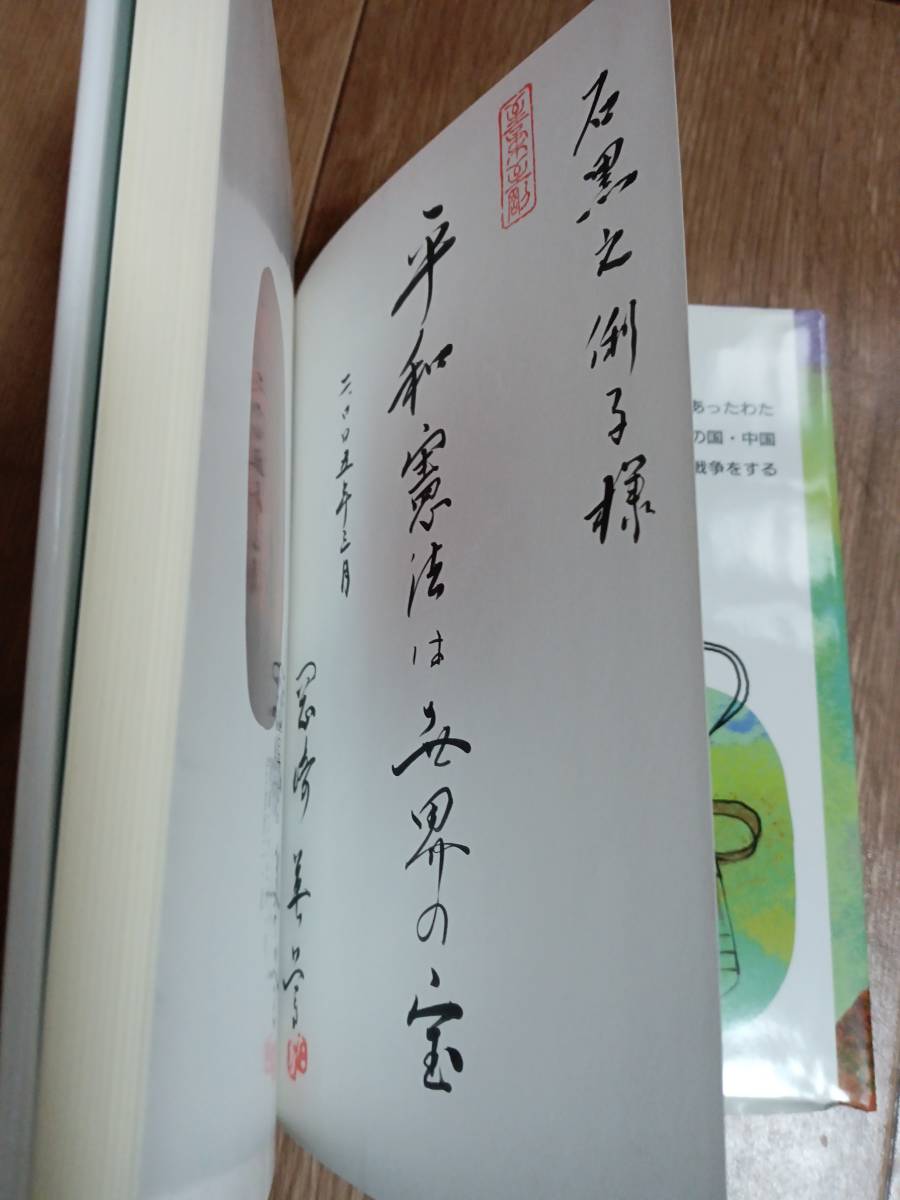 石黒文俐子様
平和憲法は世界の宝
二〇〇五年三月
あったわた
の国・中国
戦争をする